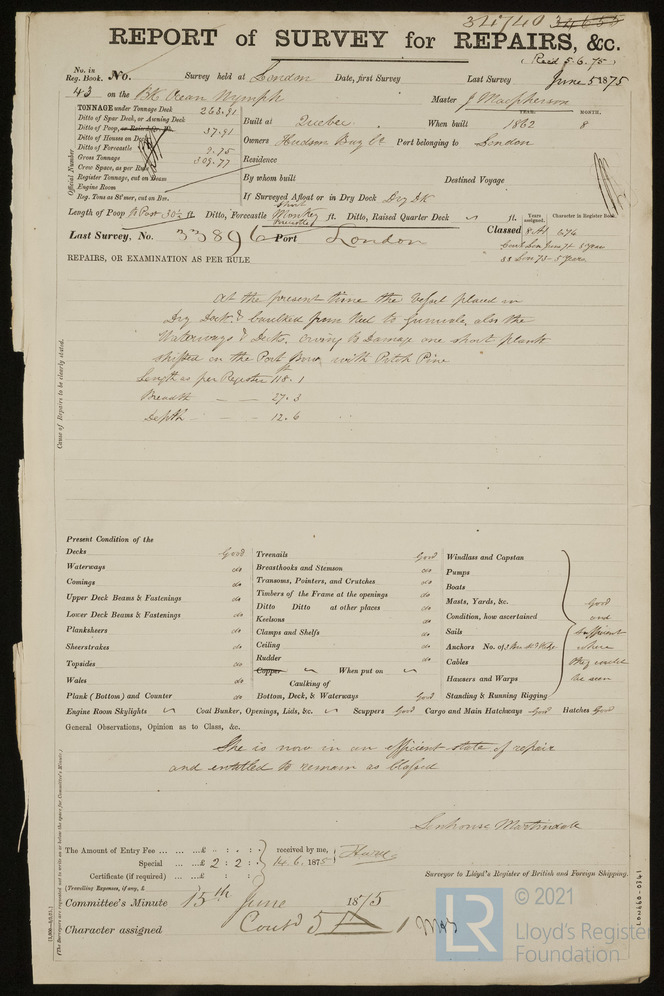 34740
REPORT of SURVEY for REPAIRS, &c.
(Rec'd 5.6.75)
No. in Reg. Book. No. Survey held at London Date, first Survey Last Survey June 5 1875
43 on the Bk Ocean Nymph Master J Macpherson
TONNAGE under Tonnage Deck 263.91
Ditto of Spar Deck, or Awning Deck
Ditto of Poop, or Raised Qr. Dk. 37.91
Ditto of Houses on Deck
Ditto of Forecastle 7.95
Gross Tonnage 309.77
Crew Space, as per Rule
Register Tonnage, cut on Beam
Engine Room
Reg. Tons as St'mer, cut on Bm.
Official Number
YEAR. MONTH.
Built at Quebec When built 1862 8
Owners Hudson Bay Co Port belonging to London
Residence
By whom built Destined Voyage
If Surveyed Afloat or in Dry Dock Dry Dk
Length of Poop 30½ ft. Ditto, Forecastle Short Monkey Forecastle ft. Ditto, Raised Quarter Deck ft.
Years assigned. Character in Register Book.
Last Survey, No. 33896 Port London Classed 8 A1
REPAIRS, OR EXAMINATION AS PER RULE
Cause of Repairs to be clearly stated.
At the present time the Vessel placed in
Dry Dock & Caulked from Keel to Gunwale, also the
Waterways & Decks. Owing to Damage one short plank
shifted on the Port Bow with Pitch Pine
Length as per Register 118.1
Breadth - - - 27.3
Depth - - - 12.6
Present Condition of the
Decks Good
Waterways do
Comings do
Upper Deck Beams & Fastenings do
Lower Deck Beams & Fastenings do
Planksheers do
Sheerstrakes do
Topsides do
Wales do
Plank (Bottom) and Counter do
Treenails Good
Breasthooks and Stemson do
Transoms, Pointers, and Crutches do
Timbers of the Frame at the openings do
Ditto Ditto at other places do
Keelsons do
Clamps and Shelfs do
Ceiling do
Rudder do
Copper When put on
Caulking of
Bottom, Deck, & Waterways Good
Windlass and Capstan
Pumps
Boats
Masts, Yards, &c.
Condition, how ascertained
Sails
Anchors No. of
Cables
Hawsers and Warps
Standing & Running Rigging
Good
and
Sufficient
where
they could
be seen
Engine Room Skylights Coal Bunker, Openings, Lids, &c. Scuppers Good Cargo and Main Hatchways Good Hatches Good
General Observations, Opinion as to Class, &c.
She is now in an efficient state of repair
and entitled to remain as Classed
Senhouse Martindale
The Amount of Entry Fee ... ... ...£ : : received by me,
Special ... ...£ 2 : 2 : 14.6.1875
Certificate (if required) ... ...£ : :
(Travelling Expenses, if any, £
Surveyor to Lloyd's Register of British and Foreign Shipping.
Committee's Minute 15th June 1875
Character assigned Contd 5
(The Surveyors are requested not to write on or below the space for Committee's Minute.)
LR
© 2021
Lloyd's Register
Foundation